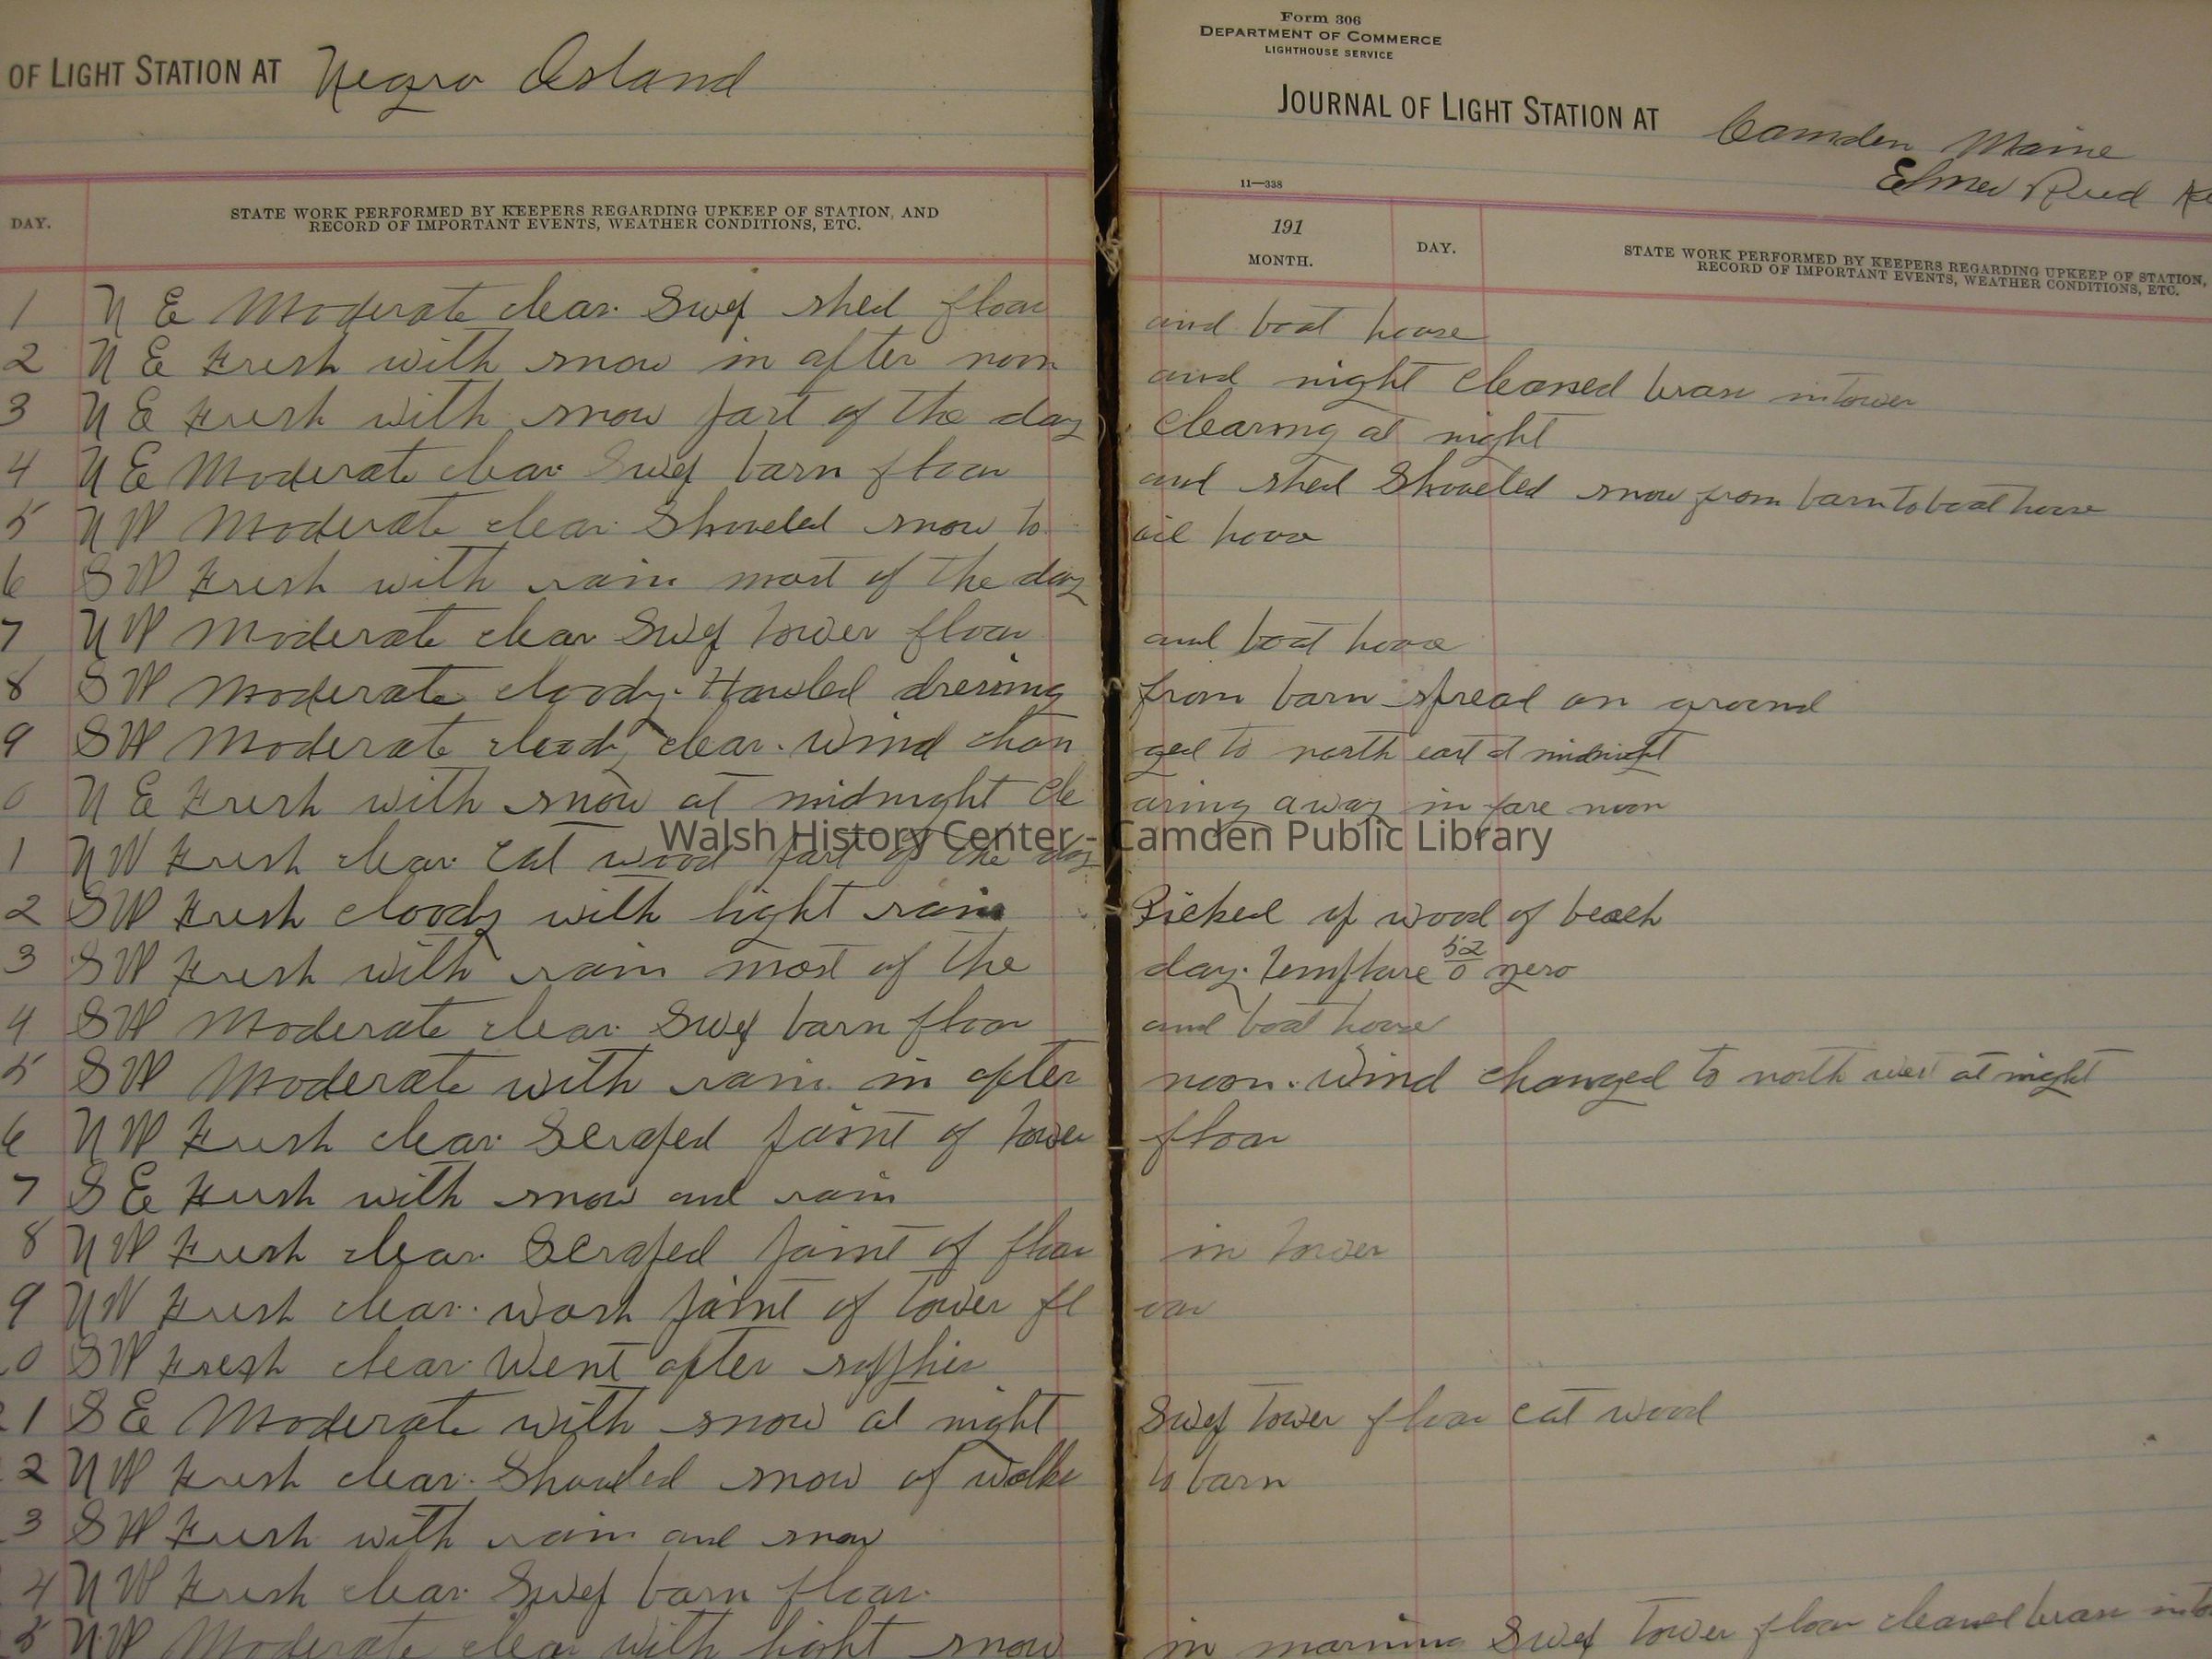 OF LIGHT STATION AT Negro Island
DAY.
STATE WORK PERFORMED BY KEEPERS REGARDING UPKEEP OF STATION, AND
RECORD OF IMPORTANT EVENTS, WEATHER CONDITIONS, ETC.
1 N E Moderate clear. Swep shed floor
2 N E Fresh with snow in after noon
3 N E Fresh with snow part of the day
4 N E Moderate clear Swep barn floor
5 N W Moderate clear Shoveled snow to
6 S W Fresh with rain most of the day
7 N W Moderate clear Swep tower floor
8 S W Moderate cloody. Hauled dressing
9 S W Moderate clear. Wind chan
0 N E Fresh with snow at midnight cle
1 N W Fresh clear cut wood part of the day
2 S W Fresh cloody with light rain
3 S W Fresh with rain most of the
4 S W Moderate clear. Swep barn floor
5 S W Moderate with rain in after
6 N W Fresh clear. Scraped paint of tower
7 S E Fresh with snow and rain
8 N W Fresh clear. Scraped paint of floor
9 N W Fresh clear. wash paint of tower fl
0 S W Fresh clear. Went after supplies
21 S E Moderate with snow at night
2 N W Fresh clear. Shoveled snow of walks
3 S W Fresh with rain and snow
4 N W Fresh clear. Swep barn floor.
5 N W Moderate clear with light snow
Form 306
DEPARTMENT OF COMMERCE
LIGHTHOUSE SERVICE
JOURNAL OF LIGHT STATION AT Camden Maine
Elmer Reed Ke
11—338
191
MONTH.
DAY.
STATE WORK PERFORMED BY KEEPERS REGARDING UPKEEP OF STATION,
RECORD OF IMPORTANT EVENTS, WEATHER CONDITIONS, ETC.
and boat house
and night cleaned brass in tower
clearing at night
and shed Shoveled snow from barn to boat house
oil house
and boat house
from barn spread on ground
ged to north east at midnight
aring away in fore noon
Picked up wood of beach
day. 52 0 zero
and boat house
noon. wind changed to north west at night
floor
in tower
oor
Swep tower floor cut wood
to barn
in morning Swep tower floor cleaned brass in to
Walsh History Center - Camden Public Library